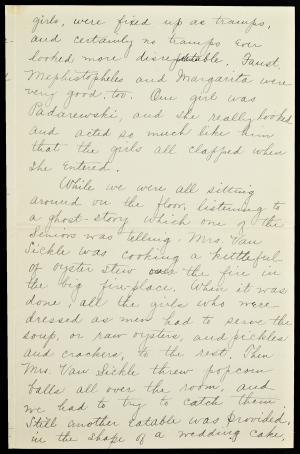 girls, were fixed up as tramps,
and certainly no tramps ever
looked more disreputable. Faust,
Mephistopheles and Margarita were
very good, too. One girl was
Padarewski, and she really looked
and acted so much like him
that the girls all clapped when
she entered.
While we were all sitting
around on the floor, listening to
a ghost-story which one of the
Seniors was telling, Mrs. Van
Sickle was cooking a kettleful
of oyster stew over the fire in
the big fireplace. When it was
done, all the girls who were
dressed as men had to serve the
soup, or raw oysters, and pickles
and crackers, to the rest. Then
Mrs. Van Sickle threw popcorn
balls all over the room, and
we had to try to catch them.
Still another eatable was provided,
in the shape of a wedding cake,